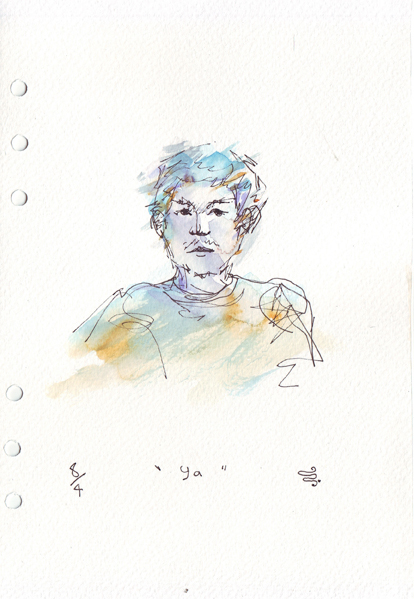 8/4 " ya "